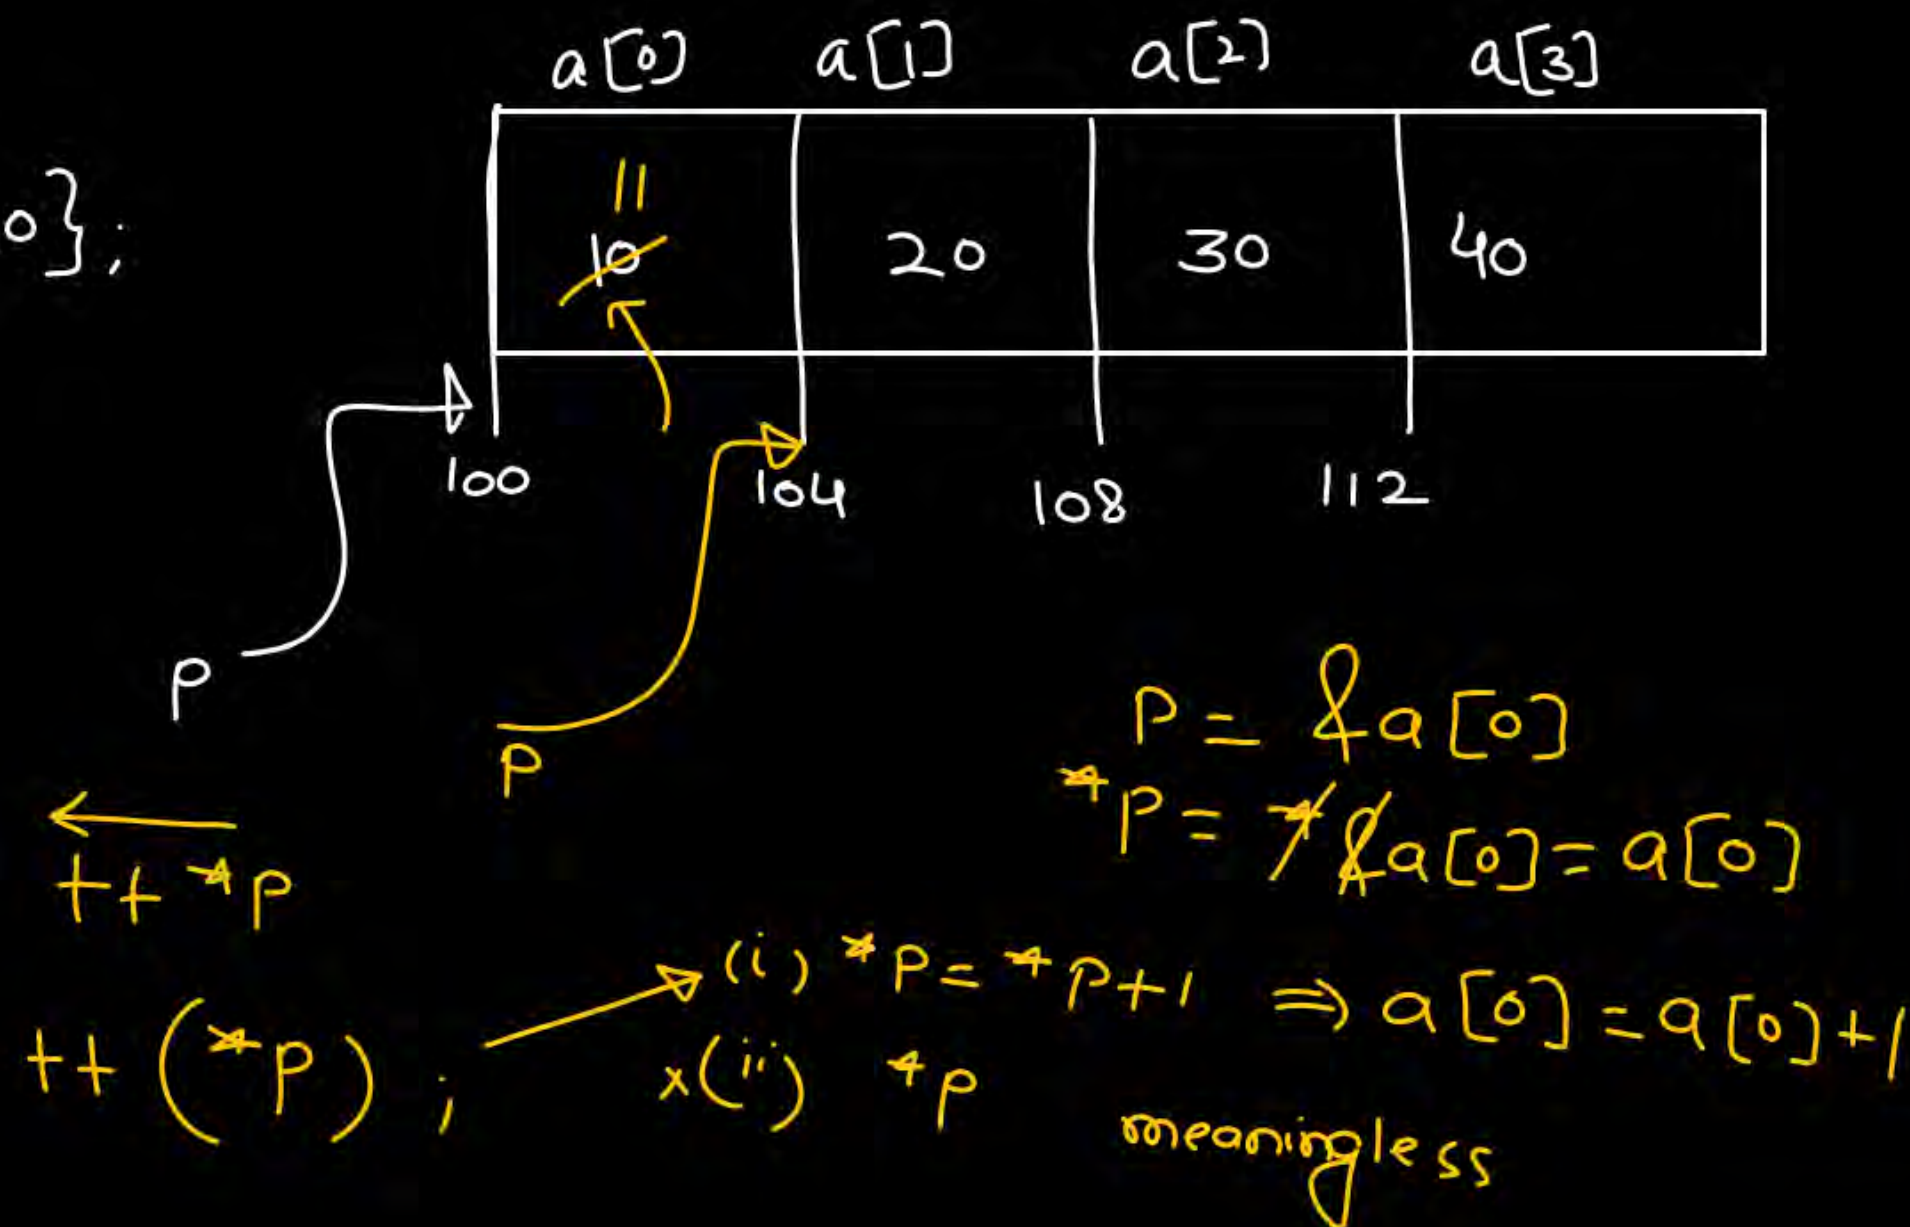 a[0] a[1] a[2] a[3]
0};
11
10 20 30 40
100 104 108 112
p
p
p = &a[0]
*p = *&a[0] = a[0]
++ *p
++ (*p) ; (i) *p = *p+1 ⇒ a[0] = a[0]+1
x(ii) *p
meaningless